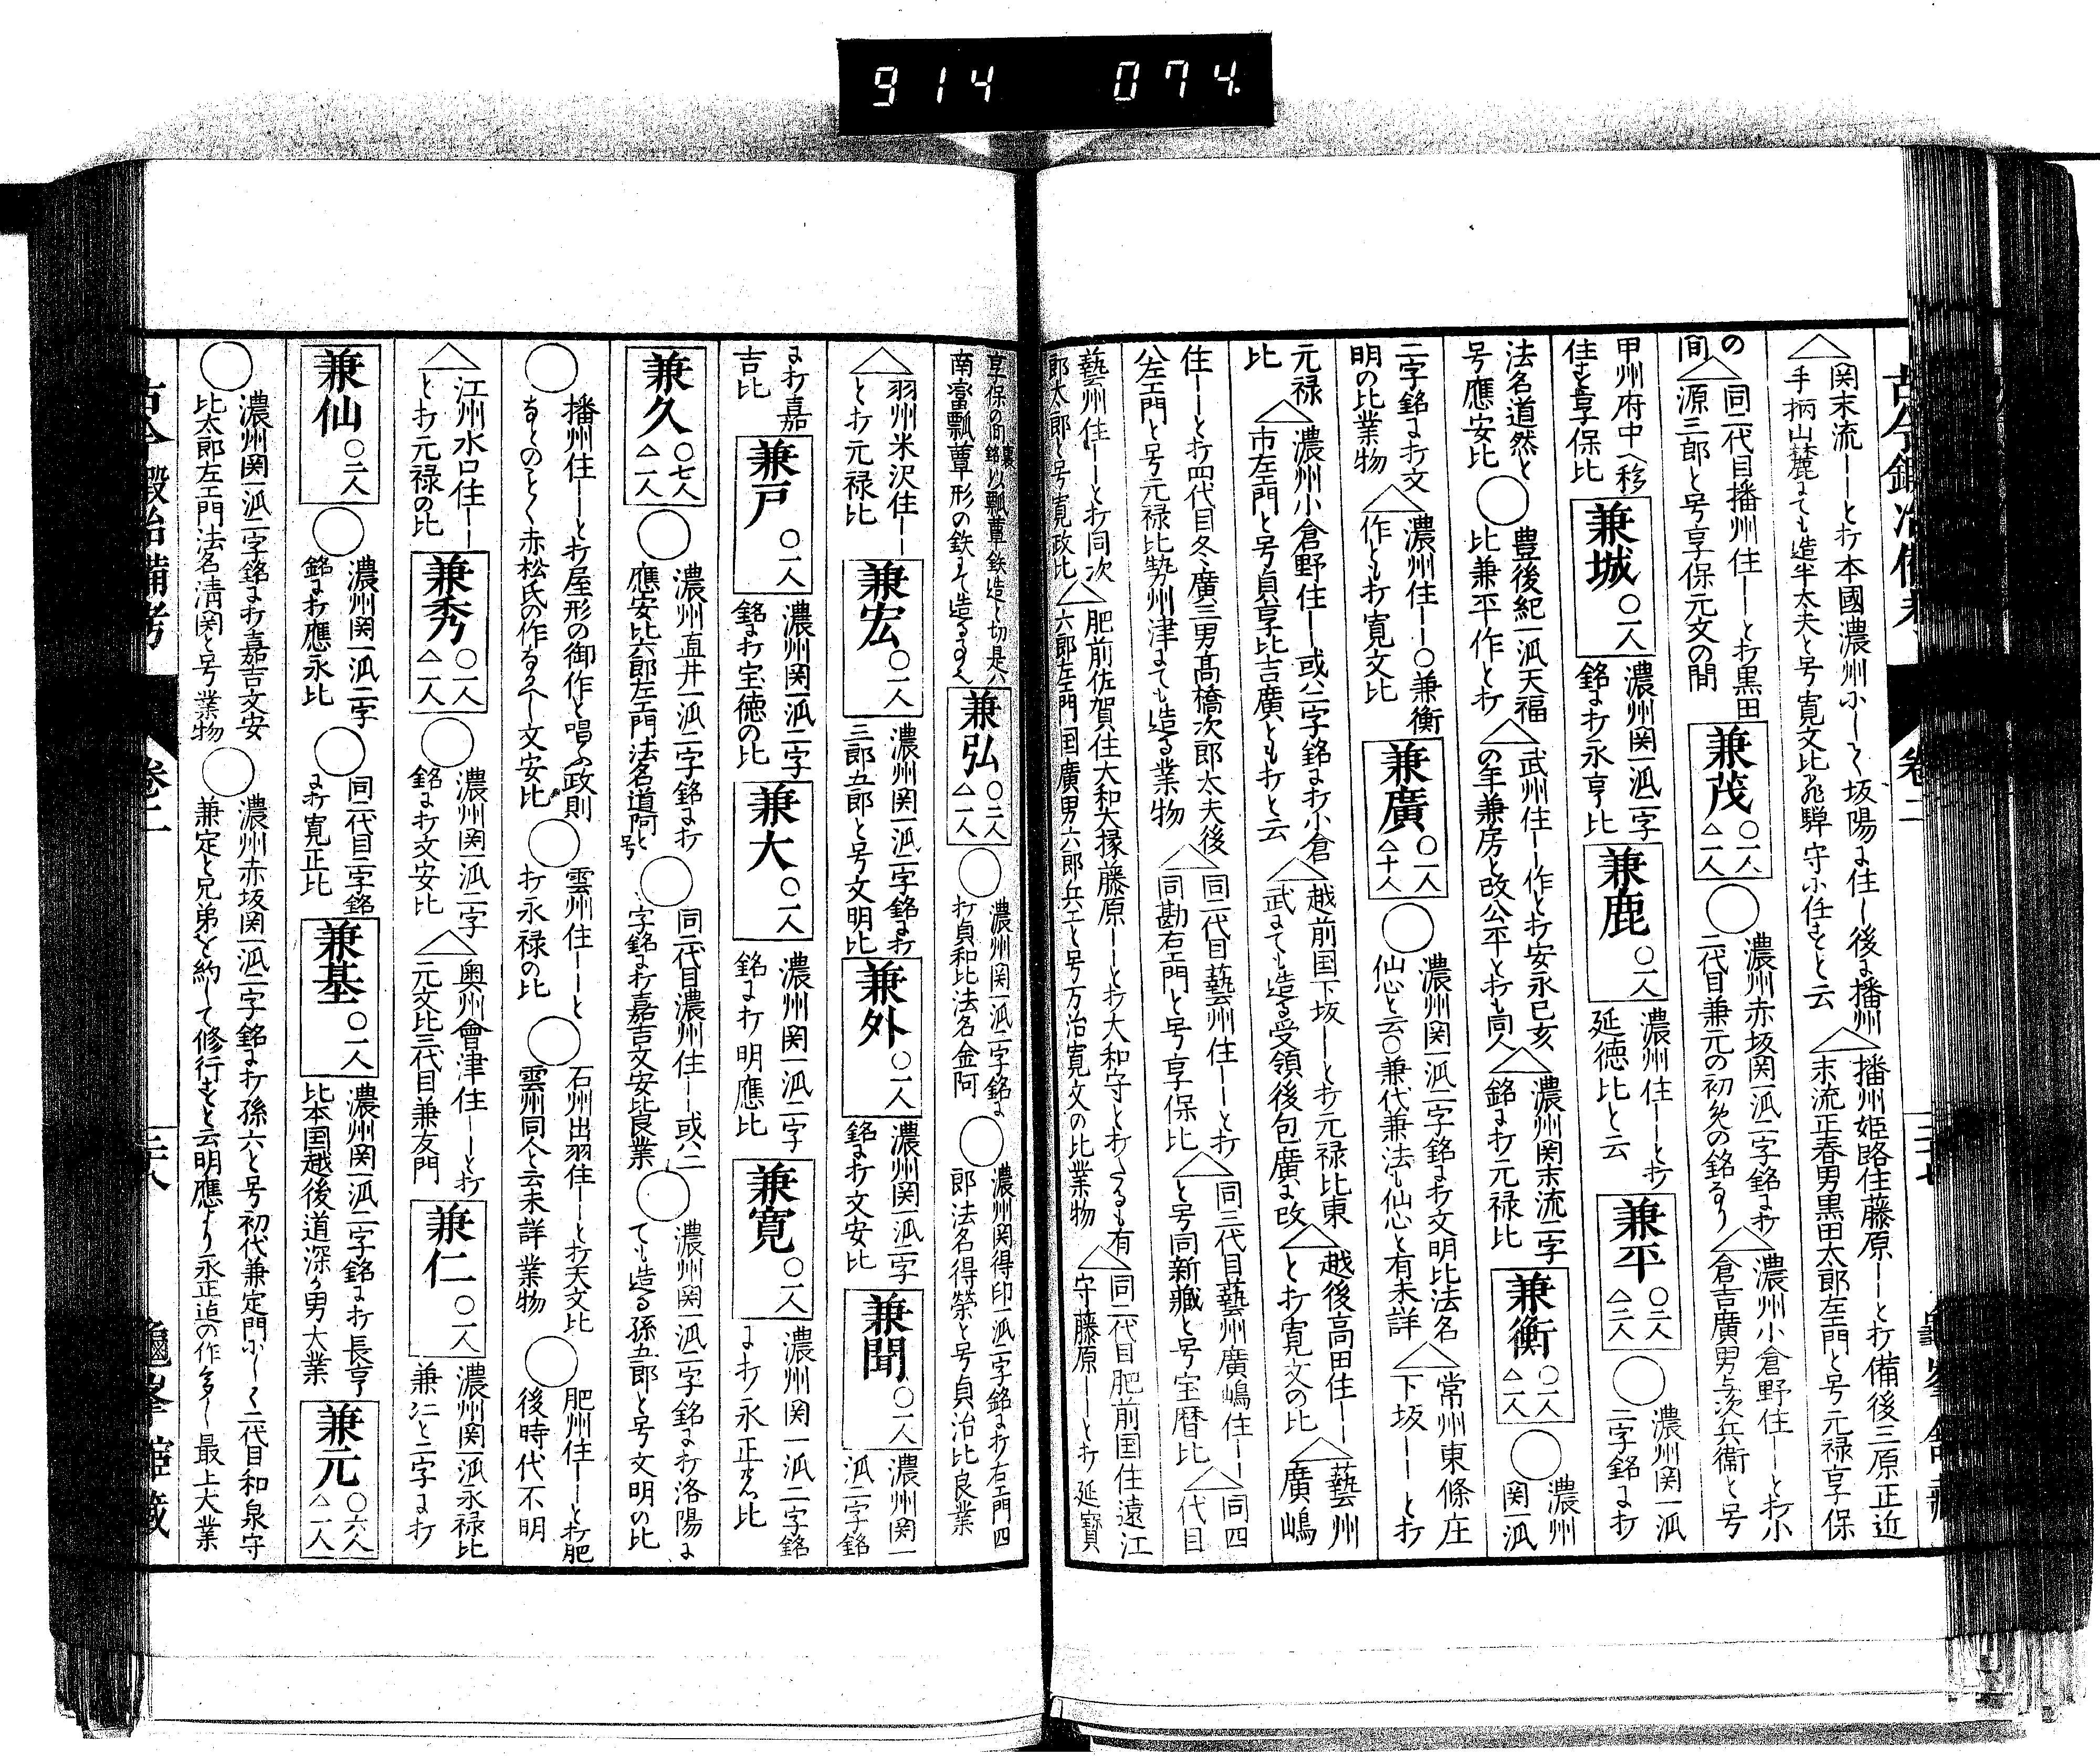 914 074.
古今鍛冶備考 卷二
△関末流――と打本國濃州ふ〱坂陽に住し後に播州手柄山麓にても造半太夫と号寛文比飛騨守小任すと云
△播州姫路住藤原――と打備後三原正近末流正春男黒田太郎左エ門と号元禄享保の間
△同二代目播州住――と打黒田源三郎と号享保元文の間
兼茂 ○一人 △一人
○濃州赤坂関一派二字銘に打二代目兼元の初めの銘なり
△濃州小倉野住――と打小倉吉廣男与次兵衞と号甲州府中へ移住す享保比
兼城 ○一人
濃州関一派二字銘に打永亨比
兼鹿 ○一人
濃州住――と打延徳比と云
兼平 ○二人 △二人
○濃州関一派二字銘に打法名道然と号應安比
○豊後紀一派天福比兼平作と打
△武州住――作と打安永己亥の年兼房と改公平とも打同人
△濃州関末流二字銘に打元禄比
兼衡 ○一人 △一人
○濃州関一派二字銘に打文明の比業物
△濃州住――○兼衡作とも打寛文比
兼廣 ○一人 △十人
○濃州関一派二字銘に打文明比法名仙心と云○兼代兼法も仙心と有未詳
△常州東條庄下坂――と打元禄比
△濃州小倉野住――或ハ二字銘に打小倉市左エ門と号貞享比吉廣とも打と云
△越前国下坂――と打元禄比東武にても造る受領後包廣に改
△越後高田住――と打寛文の比
△藝州廣嶋住――と打四代目冬廣三男髙橋次郎太夫後公左エ門と号元禄比勢州津にても造る業物
△同二代目藝州住――と打同勘右エ門と号享保比
△同三代目藝州廣嶋住――と号同新藏と号宝暦比
△同四代目藝州住――と打同次郎太郎と号寛政比
△肥前佐賀住大和大掾藤原――と打大和守と打たるも有六郎左エ門国廣男六郎兵エと号万治寛文の比業物
△同二代目肥前国住遠江守藤原――と打延寶
享保の間銘以瓢蕈鉄造之切是ハ南蛮瓢蕈形の鉄にて造るなり
兼弘 ○二人 △一人
○濃州関一派二字銘に打貞和比法名金阿
○濃州関得印一派二字銘に打右エ門四郎法名得榮と号貞治比良業
△羽州米沢住――と打元禄比
兼宏 ○一人
濃州関一派二字銘に打三郎五郎と号文明比
兼外 ○一人
濃州関一派二字銘に打文安比
兼聞 ○一人
濃州関一派二字銘に打嘉吉比
兼戸 ○一人
濃州関一派二字銘に打宝徳の比
兼大 ○一人
濃州関一派二字銘に打明應比
兼寛 ○一人
濃州関一派二字銘に打永正比
兼久 ○七人 △一人
○濃州直井一派二字銘に打應安比六郎左エ門法名道阿と号
○同二代目濃州住――或ハ二字銘に打嘉吉文安比良業
○濃州関一派二字銘に打洛陽にても造る孫五郎と号文明の比
○播州住――と打屋形の御作と唱ふ政則なとのとく赤松氏の作なるへし文安比
○雲州住――と打永禄の比
○石州出羽住――と打天文比雲州同人と云未詳業物
○肥州住――と打肥後時代不明
△江州水口住――と打元禄の比
兼秀 ○一人 △一人
○濃州関一派二字銘に打文安比
△奥州會津住――と打元文比三代目兼友門
兼仁 ○一人
濃州関一派永禄比兼仁と二字に打
兼仙 ○二人
○濃州関一派二字銘に打應永比
○同二代目二字銘に打寛正比
兼基 ○一人
濃州関一派二字銘に打長亨比本国越後道深か男大業
兼元 ○六人 △一人
○濃州関一派二字銘に打嘉吉文安比太郎左エ門法名清関と号業物
○濃州赤坂関一派二字銘に打孫六と号初代兼定門ふ〱二代目和泉守兼定と兄弟を約して修行すと云明應より永正迄の作多し最上大業
古今鍛冶備考 卷二 二十八 龜峯舘藏